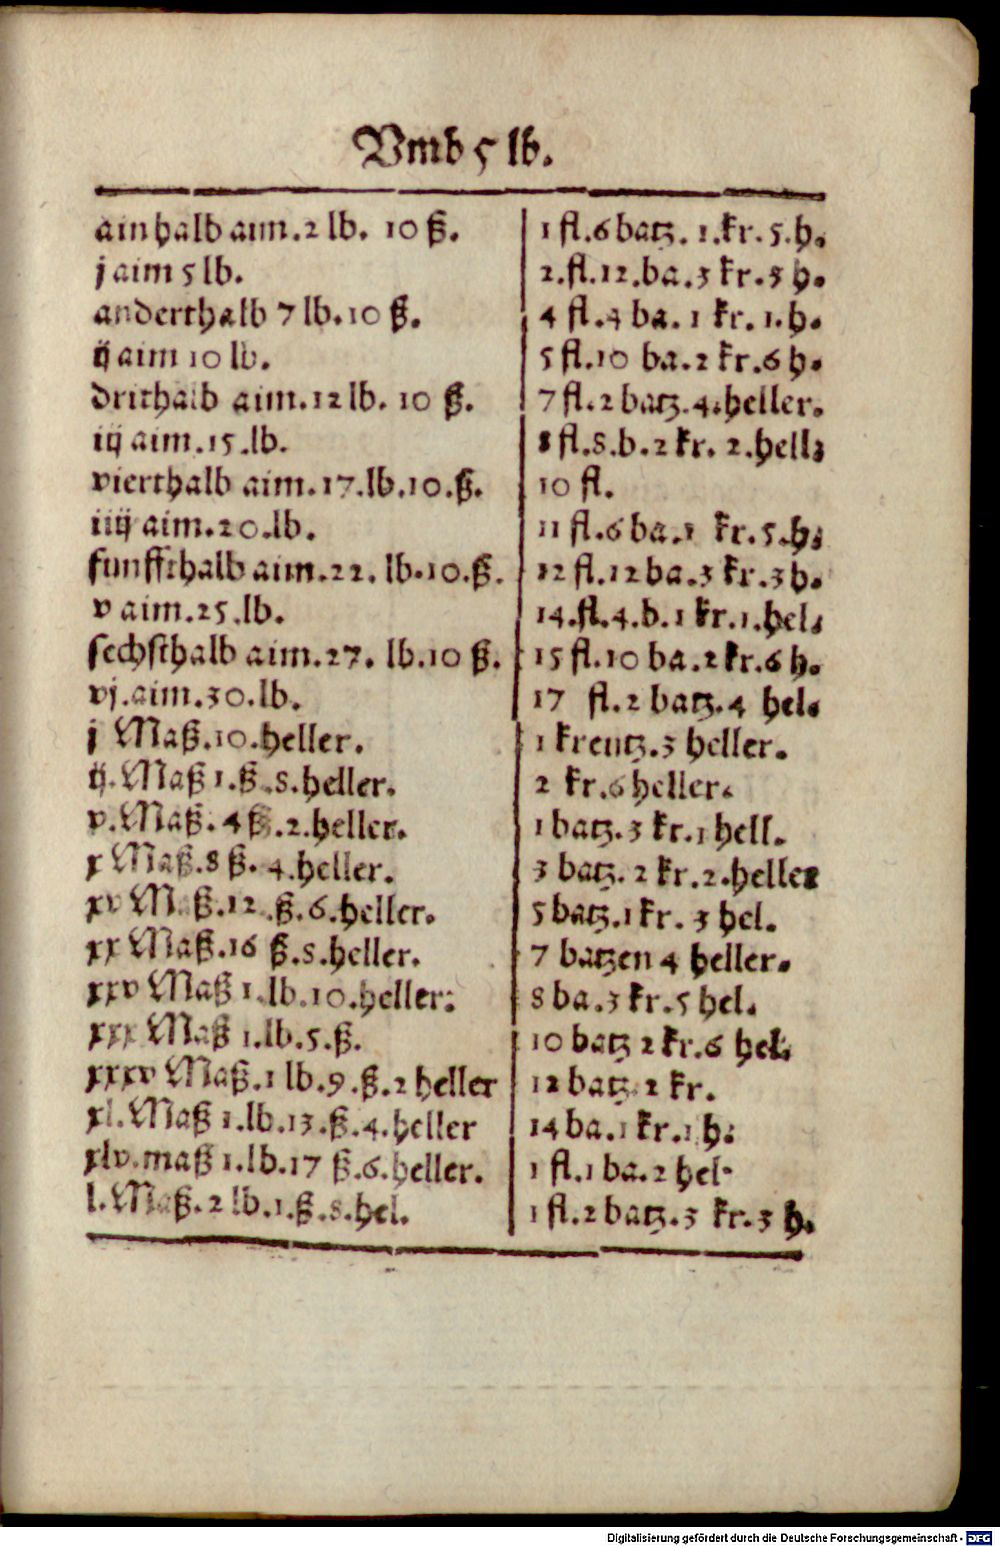 Vmb 5 lb.
ain halb aim. 2 lb. 10 ß. 1 fl. 6 batz. 1. kr. 5. h.
j aim 5 lb. 2. fl. 12. ba. 3 kr. 3 h.
anderthalb 7 lb. 10 ß. 4 fl. 4 ba. 1 kr. 1. h.
ij aim 10 lb. 5 fl. 10 ba. 2 kr. 6 h.
drithalb aim. 12 lb. 10 ß. 7 fl. 2 batz. 4. heller.
iij aim. 15. lb. 8 fl. 8. b. 2 kr. 2. hell;
vierthalb aim. 17. lb. 10. ß. 10 fl.
iiij aim. 20. lb. 11 fl. 6 ba. 1 kr. 5. h;
funffthalb aim. 22. lb. 10. ß. 12 fl. 12 ba. 3 kr. 3 h.
v aim. 25. lb. 14. fl. 4. b. 1 kr. 1. hel;
sechsthalb aim. 27. lb. 10 ß. 15 fl. 10 ba. 2 kr. 6 h.
vj. aim. 30. lb. 17 fl. 2 batz. 4 hel.
j Maß. 10. heller. 1 kreutz. 3 heller.
ij. Maß 1. ß. 8. heller. 2 kr. 6 heller.
v. Maß. 4 ß. 2. heller. 1 batz. 3 kr. 1 hell.
x Maß. 8 ß. 4. heller. 3 batz. 2 kr. 2. heller
xv Maß. 12. ß. 6. heller. 5 batz. 1 kr. 3 hel.
xx Maß. 16 ß. 8. heller. 7 batzen 4 heller.
xxv Maß 1. lb. 10. heller: 8 ba. 3 kr. 5 hel.
xxx Maß 1. lb. 5. ß. 10 batz 2 kr. 6 hel.
xxxv Maß. 1 lb. 9. ß. 2 heller 12 batz 2 kr.
xl. Maß 1. lb. 13. ß. 4. heller 14 ba. 1 kr. 1 h:
xlv. maß 1. lb. 17 ß. 6. heller. 1 fl. 1 ba. 2 hel.
l. Maß. 2 lb. 1. ß. 8. hel. 1 fl. 2 batz. 3 kr. 3 h.
Digitalisierung gefördert durch die Deutsche Forschungsgemeinschaft - DFG